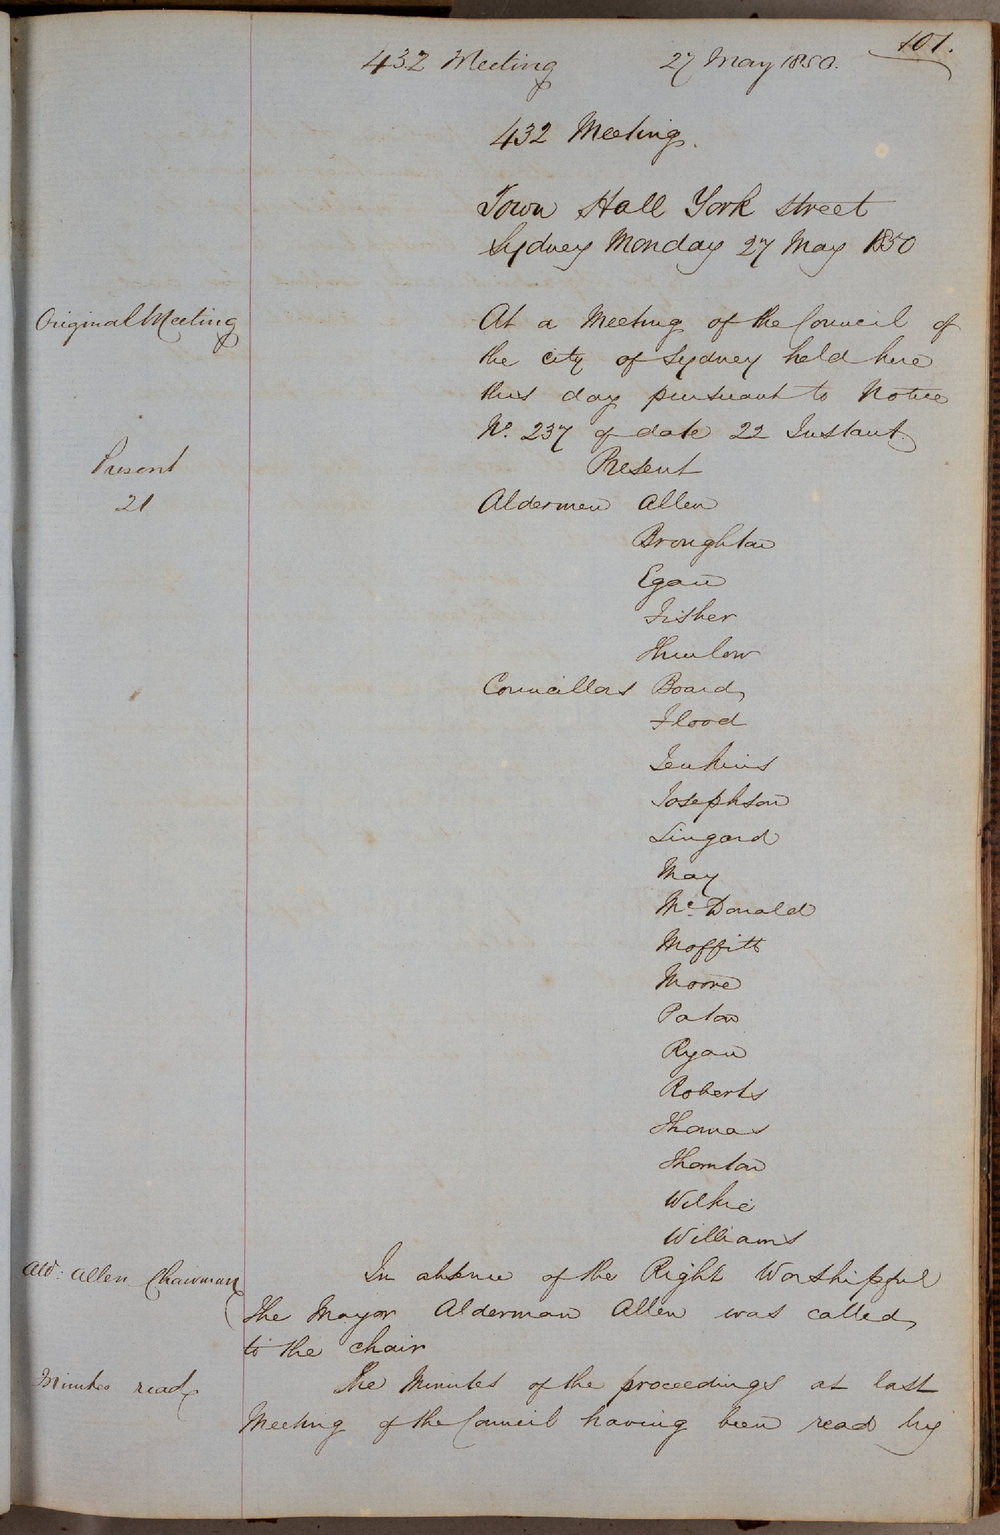 101.
432 Meeting 27 May 1850.
432 Meeting.
Town Hall York street
Sydney Monday 27 May 1850
Original Meeting
At a Meeting of the Council of
the city of Sydney held here
this day pursuant to Notice
No. 237 of date 22 Instant.
Present
21
Present
Aldermen Allen
Broughton
Egan
Fisher
Thurlow
Councillors Board
Flood
Jenkins
Josephson
Lingard
May
Mc.Donald
Moffitt
Moore
Paton
Ryan
Roberts
Thomas
Thornton
Wilkie
Williams
Ald: Allen Chairman
In absence of the Right Worshipful
the Mayor Alderman Allen was called
to the chair
Minutes read
The Minutes of the proceedings at last
Meeting of the Council having been read by